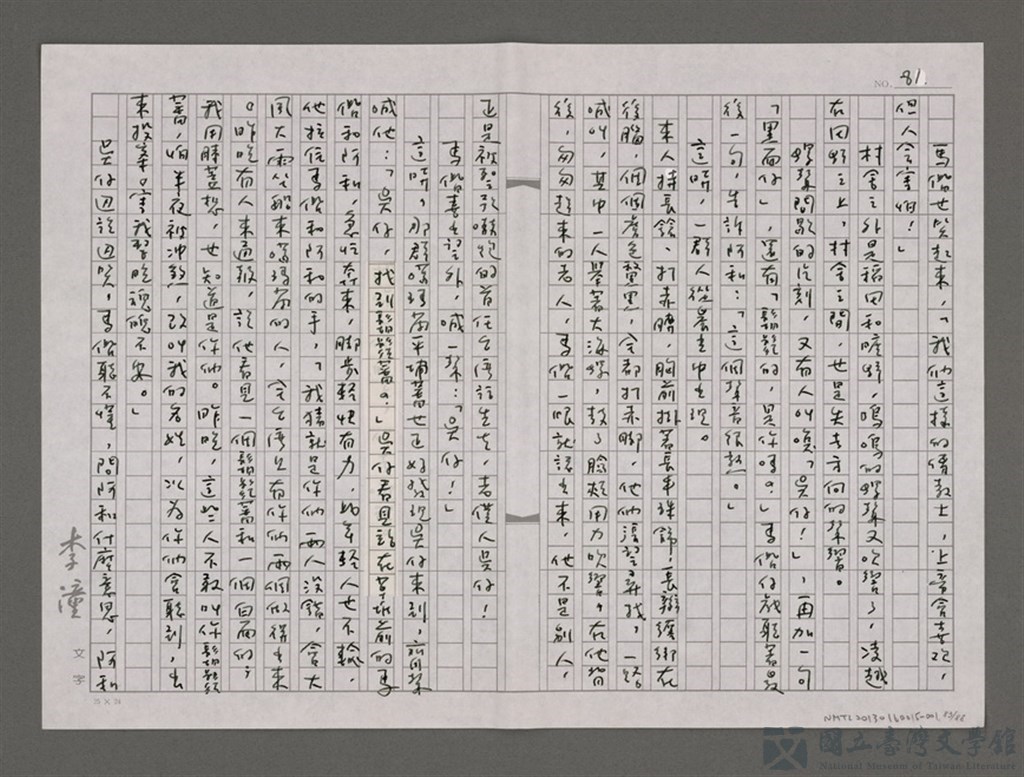 NO. 81.
馬偕也笑起來，「我們這樣的傳教士，上帝會喜歡，
但人會害怕！」
村舍之外是稻田和曠野，嗚嗚的螺聲又吹響了，凌越
在田野之上，村舍之間，也是失去方向的聲響。
螺聲間歇的片刻，又有人叫喚「吳仔！」，再加一句
「黑面仔」，還有「鬍鬚的，是你嗎？」馬偕仔細聽著最
後一句，告訴阿和：「這個聲音很熟。」
這時，一群人從晨光中出現。
來人持長鎗、打赤膊，胸前掛著長串珠飾，長辮纏綁在
後腦，個個膚色黧黑，全都打赤腳，他們沿望尋找，一路
喊叫，其中一人舉著大海螺，鼓了臉頰用力吹響，在他背
後，匆匆趕來的老人，馬偕一眼就認出來，他不是別人，
正是被
的首任
先生，老僕人吳仔！
馬偕奔出望外，喊一聲：「吳仔！」
這時，那群噶瑪蘭平埔番也正好發現吳仔來到，齊聲
喊他：「吳仔，找到鬍鬚番。」吳仔看見站在
前的馬
偕和阿和，急忙奔來，腳步輕快有力，比年輕人也不輸。
他拉住馬偕和阿和的手，「我猜就是你們兩人沒錯，會大
風大雨坐船來噶瑪蘭的人，全台灣只有你們兩個做得出來
。昨晚有人來通報，說他看見一個鬍鬚番和一個白面的，
我用膝蓋想，也知道是你們。昨晚，這些人不敢叫你鬍鬚
番，怕半夜被沖煞，改叫我的名姓，以為你們會聽到，出
來投靠。害我整晚魂魄不安。」
吳仔邊說邊笑，馬偕聽不懂，問阿和什麼意思，阿和
李潼
文字
25 × 24
NMTL20130160215-001, 83/86
國立臺灣文學館
National Museum of Taiwan Literature